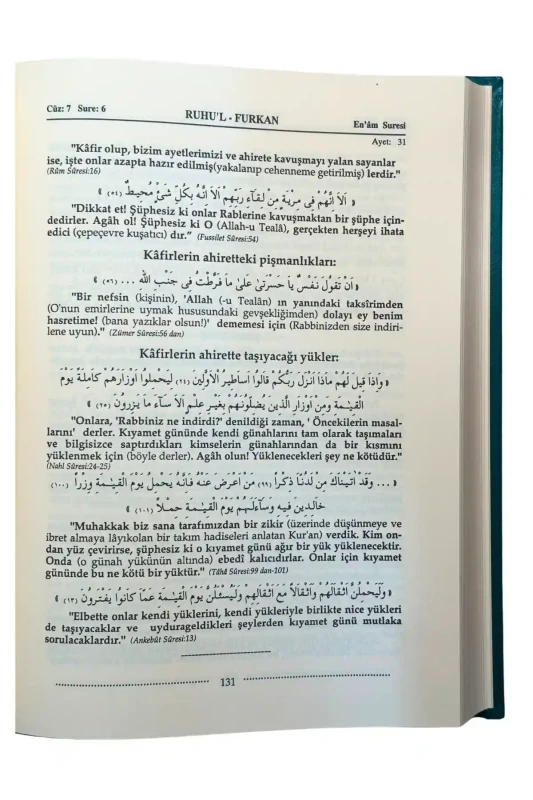 Cüz: 7 Sure: 6
RUHU'L - FURKAN
En'âm Suresi
Ayet: 31
"Kâfir olup, bizim ayetlerimizi ve ahirete kavuşmayı yalan sayanlar
ise, işte onlar azapta hazır edilmiş(yakalanıp cehenneme getirilmiş) lerdir."
(Rûm Sûresi:16)
« اَلَا اَنَّهُمْ فِى مِرْيَةٍ مِنْ لِقَاءِ رَبِّهِمْ اَلَا اَنَّهُ بِكُلِّ شَىْءٍ مُحِيطٌ (٥٤) »
"Dikkat et! Şüphesiz ki onlar Rablerine kavuşmaktan bir şüphe için-
dedirler. Agâh ol! Şüphesiz ki O (Allah-u Tealâ), gerçekten herşeyi ihata
edici (çepeçevre kuşatıcı) dır." (Fussilet Sûresi:54)
Kâfirlerin ahiretteki pişmanlıkları:
« اَنْ تَقُولَ نَفْسٌ يَا حَسْرَتٰى عَلٰى مَا فَرَّطْتُ فِى جَنْبِ اللّٰهِ ... (٥٦) »
"Bir nefsin (kişinin), 'Allah (-u Tealân) ın yanındaki taksîrimden
(O'nun emirlerine uymak hususundaki gevşekliğimden) dolayı ey benim
hasretime! (bana yazıklar olsun!)' dememesi için (Rabbinizden size indiri-
lene uyun)." (Zümer Sûresi:56 dan)
Kâfirlerin ahirette taşıyacağı yükler:
« وَاِذَا قِيلَ لَهُمْ مَاذَا اَنْزَلَ رَبُّكُمْ قَالُوا اَسَاطِيرُ الْاَوَّلِينَ (٢٤) لِيَحْمِلُوا اَوْزَارَهُمْ كَامِلَةً يَوْمَ
الْقِيٰمَةِ وَمِنْ اَوْزَارِ الَّذِينَ يُضِلُّونَهُمْ بِغَيْرِ عِلْمٍ اَلَا سَاءَ مَا يَزِرُونَ (٢٥) »
"Onlara, 'Rabbiniz ne indirdi?' denildiği zaman, ' Öncekilerin masal-
larını' derler. Kıyamet gününde kendi günahlarını tam olarak taşımaları
ve bilgisizce saptırdıkları kimselerin günahlarından da bir kısmını
yüklenmek için (böyle derler). Agâh olun! Yüklenecekleri şey ne kötüdür."
(Nahl Sûresi:24-25)
« ... وَقَدْ اٰتَيْنَاكَ مِنْ لَدُنَّا ذِكْرًا (٩٩) مَنْ اَعْرَضَ عَنْهُ فَاِنَّهُ يَحْمِلُ يَوْمَ الْقِيٰمَةِ وِزْرًا (١٠٠)
خَالِدِينَ فِيهِ وَسَاءَ لَهُمْ يَوْمَ الْقِيٰمَةِ حِمْلًا (١٠١) »
"Muhakkak biz sana tarafımızdan bir zikir (üzerinde düşünmeye ve
ibret almaya lâyıkolan bir takım hadiseleri anlatan Kur'an) verdik. Kim on-
dan yüz çevirirse, şüphesiz ki o kıyamet günü ağır bir yük yüklenecektir.
Onda (o günah yükünün altında) ebedî kalıcıdırlar. Onlar için kıyamet
gününde bu ne kötü bir yüktür." (Tâhâ Sûresi:99 dan-101)
« وَلَيَحْمِلُنَّ اَثْقَالَهُمْ وَاَثْقَالًا مَعَ اَثْقَالِهِمْ وَلَيُسْئَلُنَّ يَوْمَ الْقِيٰمَةِ عَمَّا كَانُوا يَفْتَرُونَ (١٣) »
"Elbette onlar kendi yüklerini, kendi yükleriyle birlikte nice yükleri
de taşıyacaklar ve uydurageldikleri şeylerden kıyamet günü mutlaka
sorulacaklardır." (Ankebût Sûresi:13)
131